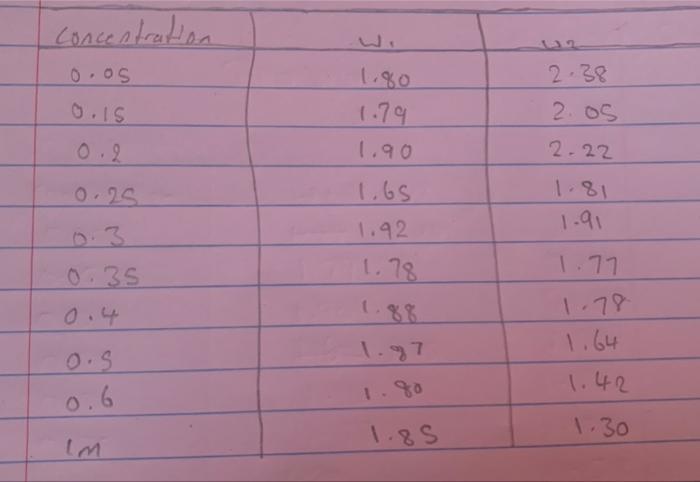 Concentration W1 W2
0.05 1.80 2.38
0.15 1.79 2.05
0.2 1.90 2.22
0.25 1.65 1.81
0.3 1.92 1.91
0.35 1.78 1.77
0.4 1.88 1.78
0.5 1.87 1.64
0.6 1.80 1.42
1M 1.85 1.30